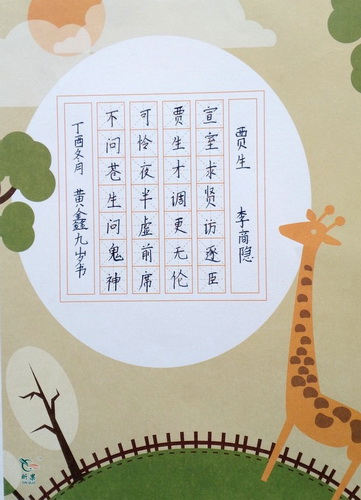 贾生 李商隐
宣室求贤访逐臣
贾生才调更无伦
可怜夜半虚前席
不问苍生问鬼神
丁酉冬月 黄鑫九岁书